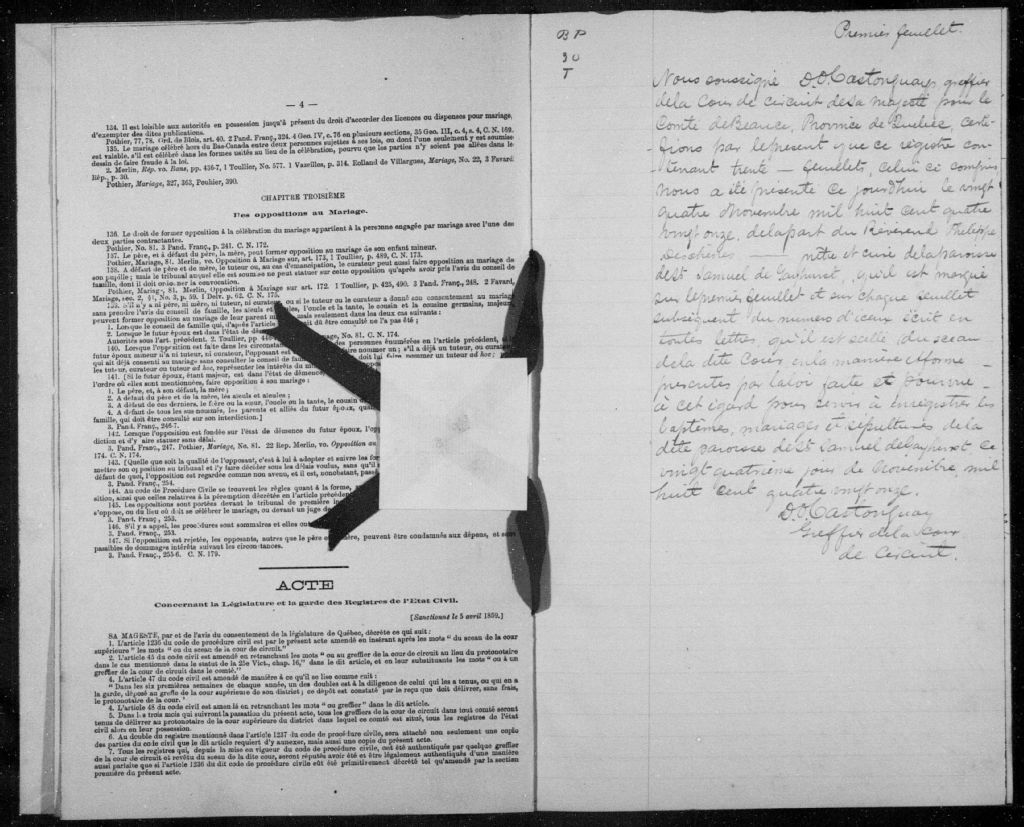 — 4 —
134. Il est loisible aux autorités en possession jusqu'à présent du droit d'accorder des licences ou dispenses pour mariage,
d'exempter des dites publications.
Pothier, 77, 78. Ord. de Blois, art. 40. 2 Pand. Franç., 324. 4 Geo. IV, c. 76 en plusieurs sections, 35 Geo. III, c. 4, s. 4, C. N. 169.
135. Le mariage célébré hors du Bas-Canada entre deux personnes sujettes à ses lois, ou dont l'une seulement y est soumise
est valable, s'il est célébré dans les formes usités au lieu de la célébration, pourvu que les parties n'y soient pas allées dans le
dessein de faire fraude à la loi.
2. Merlin, Rép. vo. Bans, pp. 436-7, 1 Toullier, No. 577. 1 Vazeilles, p. 314. Rolland de Villargues, Mariage, No. 22, 3 Favard
Rép., p. 30.
Pothier, Mariage, 327, 363, Pouhier, 390.
CHAPITRE TROISIÈME
Des oppositions au Mariage.
136. Le droit de former opposition à la célébration du mariage appartient à la personne engagée par mariage avec l'une des
deux parties contractantes.
Pothier, No. 81. 3 Pand. Franç., p. 241. C. N. 172.
137. Le père, et à défaut du père, la mère, peut former opposition au mariage de son enfant mineur.
Pothier, Mariage, 81. Merlin, vo. Opposition à Mariage, sur art. 173, 1 Toullier, p. 489, C. N. 173.
138. A défaut de père et de mère, le tuteur, ou, au cas d'émancipation, le curateur peut aussi faire opposition au mariage de
son pupille; mais le tribunal auquel elle est soumise ne peut statuer sur cette opposition qu'après avoir pris l'avis du conseil de
famille, dont il doit ordonner la convocation.
Pothier, Mariage, 81. Merlin, Opposition à Mariage sur art. 172. 1 Toullier, p. 425, 490. 3 Pand. Franç., 248. 2 Favard,
Mariage, sec. 2, No. 3, p. 59. 1 Delv. p. 62. C. N. 175.
139. S'il n'y a ni père, ni mère, ni tuteur, ni curateur, ou si le tuteur ou le curateur a donné son consentement au mariage
sans prendre l'avis du conseil de famille, les aïeuls et l'oncle et la tante, le cousin et la cousine germains, majeurs,
peuvent former opposition au mariage de leur parent mais seulement dans les deux cas suivants :
1. Lorsque le conseil de famille qui, d'après l'article dû être consulté ne l'a pas été ;
2. Lorsque le futur époux est dans l'état de
Autorités sous l'art. précédent. 2. Toullier, pp. No. 81. C. N. 174.
140. Lorsque l'opposition est faite dans les circonstances des personnes énumérées en l'article précédent, si
futur époux mineur n'a ni tuteur, ni curateur, l'opposant est nommer un ; s'il a déjà un tuteur, ou curateur
qui ait déjà consenti au mariage sans consulter le conseil de famille doit lui faire nommer un tuteur ad hoc ;
les tuteur, curateur ou tuteur ad hoc, représenter les intérêts du
141. (Si le futur époux, étant majeur, est dans l'état de démence
l'ordre où elles sont mentionnées, faire opposition à son mariage :
1. Le père, et, à son défaut, la mère ;
2. A défaut du père et de la mère, les aïeuls et aïeules ;
3. A défaut de ces derniers, le frère ou la sœur, l'oncle ou la tante, le cousin
4. A défaut de tous les sus nommés, les parents et alliés du futur époux,
famille, qui doit être consulté sur son interdiction.]
3. Pand. Franç., 246-7.
142. Lorsque l'opposition est fondée sur l'état de démence du futur époux,
diction et d'y aire statuer sans délai.
3. Pand. Franç., 247. Pothier, Mariage, No. 81. 22 Rep. Merlin, vo. Opposition
174. C. N. 174.
143. (Quelle que soit la qualité de l'opposant, c'est à lui à adopter et suivre les
mettre son opposition au tribunal et l'y faire décider sous les délais voulus, sans qu'il
défaut de quoi, l'opposition est regardée comme non avenue, et il est, nonobstant,
3. Pand. Franç., 254.
144. Au code de Procédure Civile se trouvent les règles quant à la forme,
sition, ainsi que celles relatives à la péremption décrétée en l'article précédent
145. Les oppositions sont portées devant le tribunal de première
s'oppose, ou du lieu où doit se célébrer le mariage, ou devant un juge
3. Pand. Franç., 253.
146. S'il y a appel, les procédures sont sommaires et elles ont
3. Pand. Franç., 253.
147. Si l'opposition est rejetée, les opposants, autres que le père et mère, peuvent être condamnés aux dépens, et sont
passibles de dommages intérêts suivant les circonstances.
3. Pand. Franç., 255-6. C. N. 179.
ACTE
Concernant la Législature et la garde des Registres de l'Etat Civil.
[Sanctionné le 5 avril 1859.]
SA MAGESTÉ, par et de l'avis du consentement de la législature de Québec, décrète ce qui suit :
1. L'article 1236 du code de procédure civil est par le présent acte amendé en insérant après les mots " du sceau de la cour
supérieure " les mots " ou du sceau de la cour de circuit."
2. L'article 45 du code civil est amendé en retranchant les mots " ou au greffier de la cour de circuit au lieu du protonotaire
dans le cas mentionné dans le statut de la 25e Vict., chap. 16," dans le dit article, et en leur substituants les mots " ou à un
greffier de la cour de circuit dans le comté."
4. L'article 47 du code civil est amendé de manière à ce qu'il se lise comme suit :
" Dans les six premières semaines de chaque année, un des doubles est à la diligence de celui qui les a tenus, ou qui en a
la garde, déposé au greffe de la cour supérieure de son district ; ce dépôt est constaté par le reçu que doit délivrer, sans frais,
le protonotaire de la cour. "
4. L'article 48 du code civil est amendé en retranchant les mots " ou greffier " dans le dit article.
5. Dans les trois mois qui suivront la passation du présent acte, tous les greffiers de la cour de circuit dans tout comté seront
tenus de délivrer au protonotaire de la cour supérieure du district dans lequel ce comté est situé, tous les registres de l'état
civil alors en leur possession.
6. Au double du registre mentionné dans l'article 1237 du code de procédure civile, sera attaché non seulement une copie
des parties du code civil que le dit article requiert d'y annexer, mais aussi une copie du présent acte.
7. Tous les registres qui, depuis la mise en vigueur du code de procédure civile, ont été authentiqués par quelque greffier
de la cour de circuit et revêtu du sceau de la dite cour, seront réputés avoir été et être légalement authentiqués d'une manière
aussi parfaite que si l'article 1236 du dit code de procédure civile eût été primitivement décrété tel qu'amendé par la section
première du présent acte.
B P
30
T
Premier feuillet.
Nous soussigné D.O. Castonguay, greffier
de la Cour de circuit de sa majesté pour le
Comté de Beauce, Province de Quebec, certi-
-fions par le présent que ce régistre con-
-tenant trente — feuillets, celui ci compris
nous a été présenté ce jourd'hui le vingt
quatre Novembre mil huit cent quatre
vingt onze, de la part du Révérend Philippe
Deschênes — prêtre et curé de la paroisse
de St Samuel de Gayhurst, qu'il est marqué
sur le premier feuillet et sur chaque feuillet
subséquent du numéro d'iceux écrit en
toutes lettres, qu'il est scellé du sceau
de la dite Cour, en la manière et forme
prescrites par la loi faite et pourvue
à cet égard pour servir à enregistrer les
baptêmes, mariages et sépultures de la
dite paroisse de St Samuel de Gayhurst, ce
vingt quatrième jour de Novembre mil
huit cent quatre vingt onze.
D.O. Castonguay
Greffier de la Cour
de Circuit.